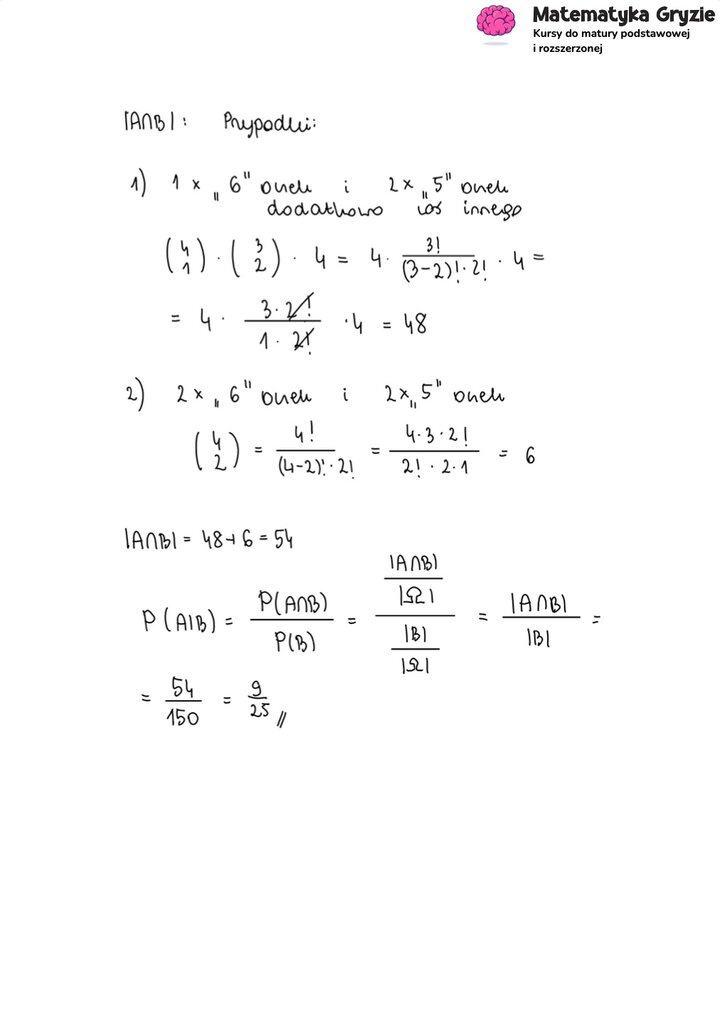 Matematyka Gryzie
Kursy do matury podstawowej
i rozszerzonej
|A∩B|: Przypadki:
1) 1 x „6" oczek i 2 x „5" oczek
dodatkowo coś innego
(4 1) · (3 2) · 4 = 4 · 3!/((3-2)! · 2!) · 4 =
= 4 · (3 · 2!)/(1 · 2!) · 4 = 48
2) 2 x „6" oczek i 2 x „5" oczek
(4 2) = 4!/((4-2)! · 2!) = (4 · 3 · 2!)/(2! · 2 · 1) = 6
|A∩B| = 48 + 6 = 54
P(A|B) = P(A∩B)/P(B) = (|A∩B|/|Ω|)/(|B|/|Ω|) = |A∩B|/|B| =
= 54/150 = 9/25 //